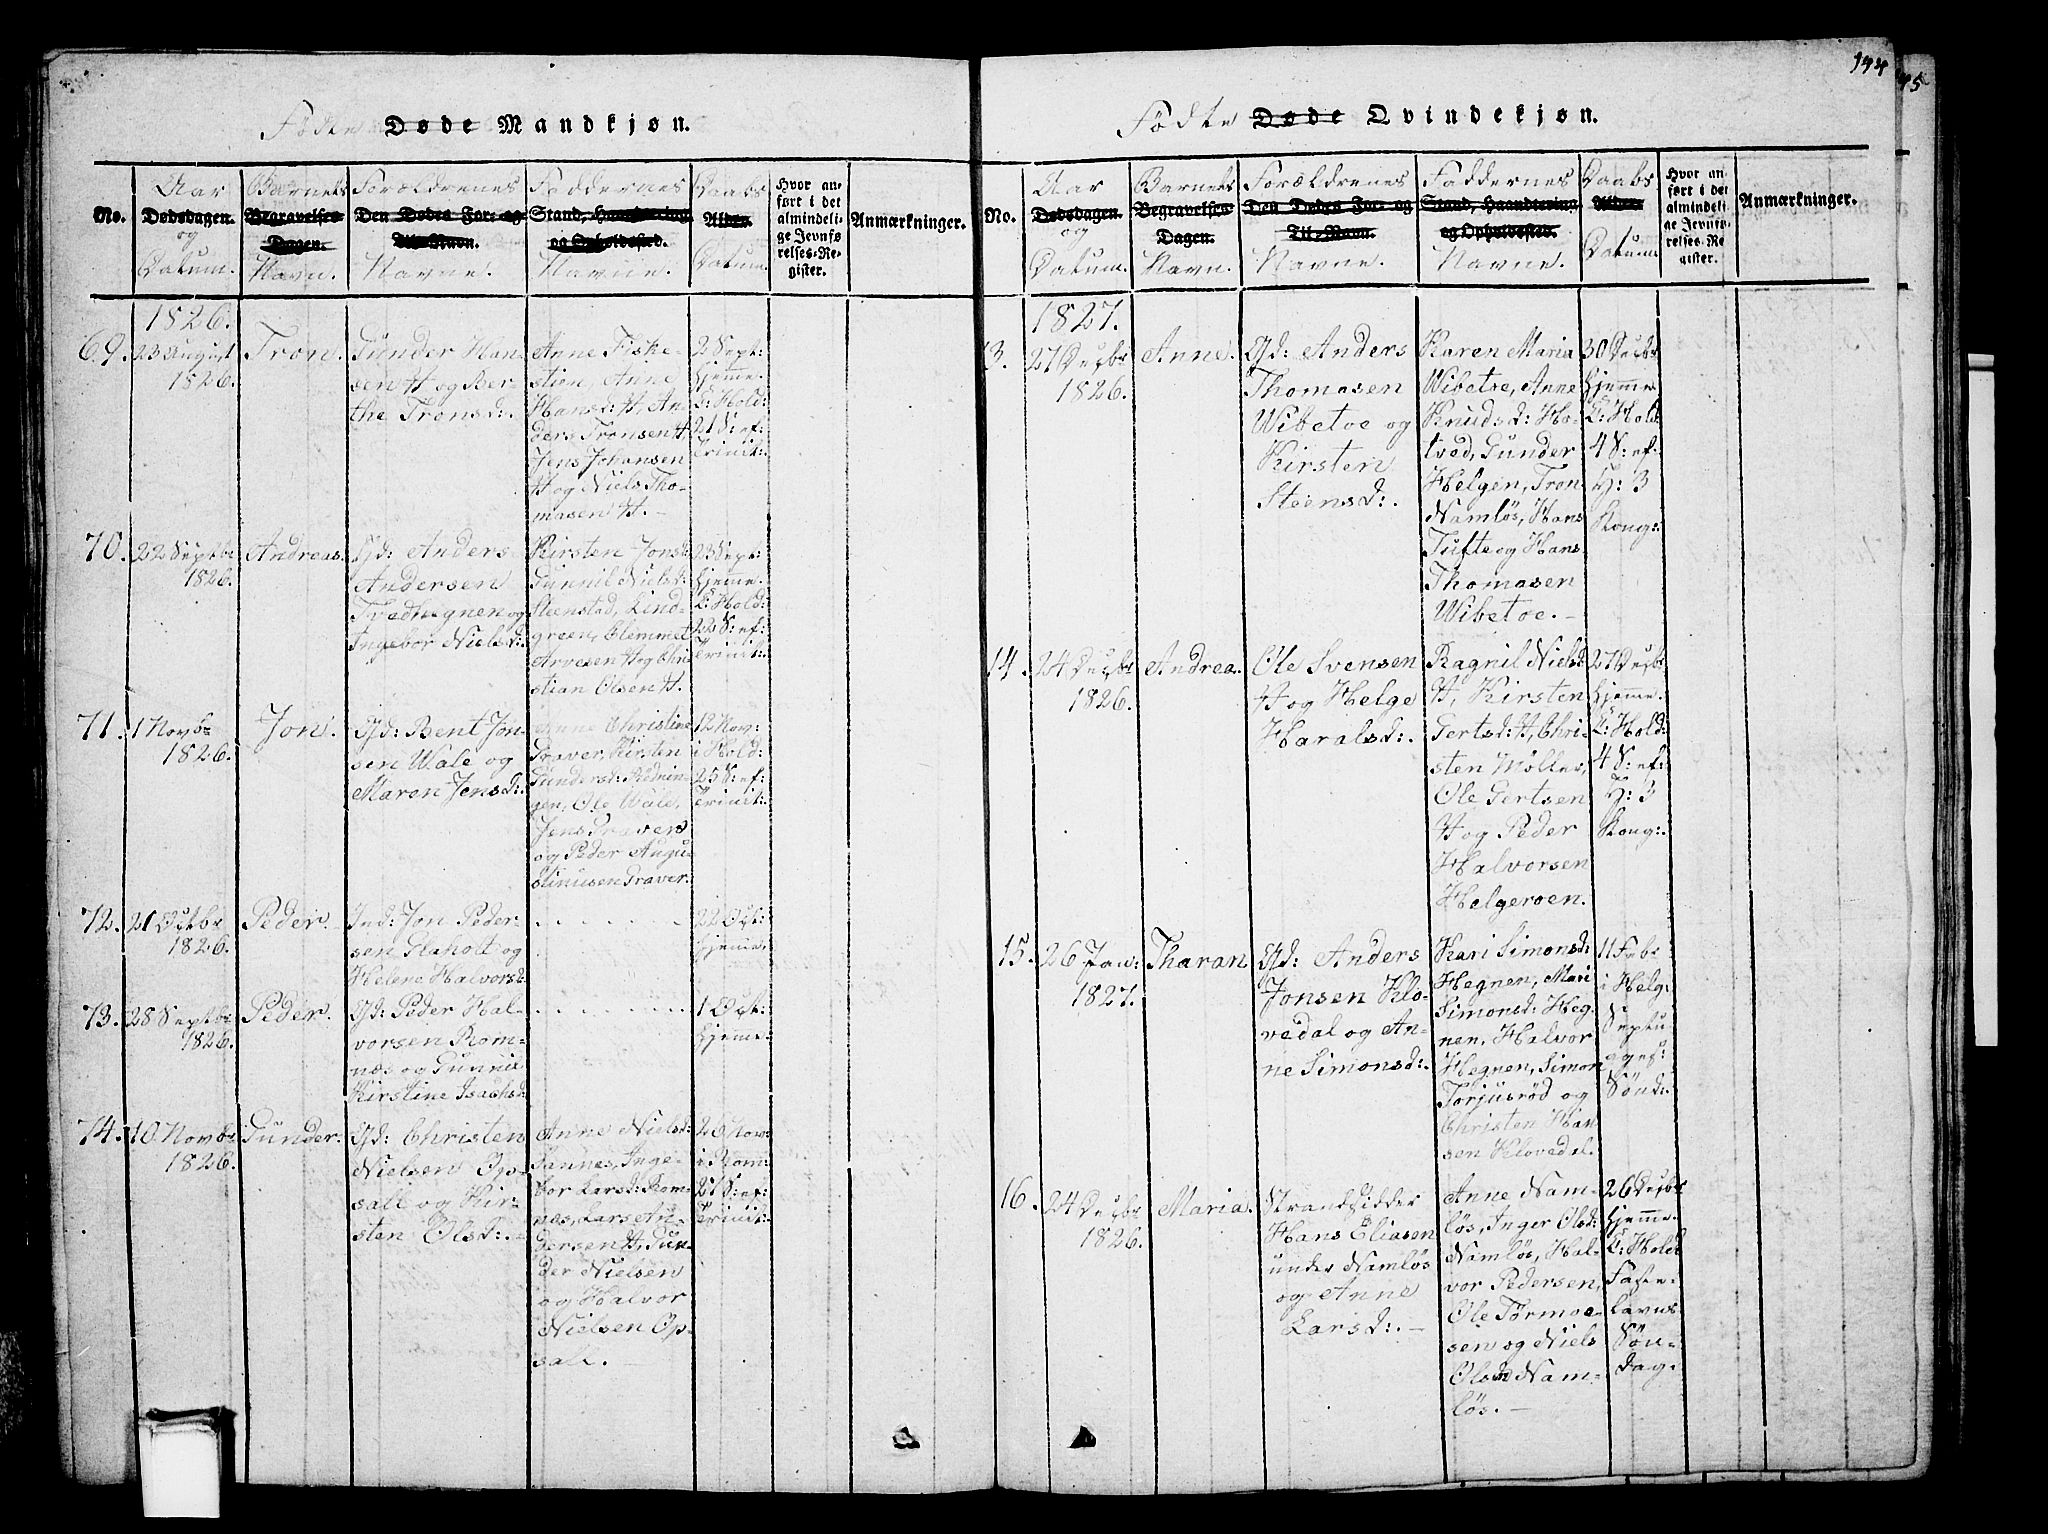 144
45
Födte Døde Mandkjøn.
No.
Aar
Dødsdagen.
og
Datum.
Barnets
Begravelses-
Dagen.
Navn.
Forældrenes
Den Dødes For- og
Til-Navn.
Navne.
Faddernes
Stand, Haandtering
og Opholdssted.
Navne.
Daabs
Alder.
Datum.
Hvor an-
ført i det
almindeli-
ge Jevnfø-
relses-Re-
gister.
Anmærkninger.
1826.
69.
23 August
1826.
Tron.
Gunder Han-
sen H og Ber-
the Tronsd:.
Anne Fiske-
stien, Anne
Hansd: H, An-
ders Tronsen H,
Jens Johansen
H og Niels Tho-
masen H.
2 Sept:
hjemme.
C: Hold:
21 S: ef:
Trinit:
70.
22 Septbr
1826.
Andreas.
Gd: Anders
Andersen
Tvedhegnen og
Ingebor Nielsd:
Kirsten Jonsd:
Gunnil Nielsd:
Steenstad, Lind-
green, Clemmet
Arvesen H og Chri-
stian Olsen H.
23 Sept:
hjemme.
C: Hold:
22 S: ef:
Trinit:
71.
1 Novbr
1826.
Jon.
Gd: Bent Jon-
sen Wale og
Maren Jensd:.
Anne Christine
Graver, Kirsten
Gundersd: Rednin-
gen, Ole Wale,
Jens Graver
og Peder Augu-
stinusen Graver.
12 Nov:
i Hold:
25 S: ef:
Trinit:.
72.
21 Octbr
1826.
Peder.
Ind: Jon Peder-
sen Flaholt og
Helene Halvorsd:
22 Oct:
hjeme.
73.
28 Septbr
1826.
Peder.
Gd: Peder Hal-
vorsen Rom-
næs og Gunnil
Kirstine Isachsd:
1 Oct:
hjeme.
74.
10 Novbr
1826.
Gunder.
Gd: Christen
Nielsen Op-
sall og Kir-
sten Olsd:.-
Anne Nielsd:
Sannes, Inge-
bor Larsd: Rom-
næs, Lars An-
dersen H, Gun-
der Nielsen
og Halvor
Nielsen Op-
sall.
26 Nov:
i Rom:
27 S: ef:
Trinit:
Födte Døde Qvindekjøn.
No.
Aar
Dødsdagen.
og
Datum.
Barnets
Begravelses-
Dagen.
Navn.
Forældrenes
Den Dødes For- og
Til-Navn.
Navne.
Faddernes
Stand, Haandtering
og Opholdssted.
Navne.
Daabs
Alder.
Datum.
Hvor an-
ført i det
almindeli-
ge Jevnfø-
relses-Re-
gister.
Anmærkninger.
1827.
13.
27 Decbr
1826.
Anne.
Gd: Anders
Thomasen
Wibetoe og
Kirsten
Steensd:.
Karen Maria
Wibetoe, Anne
Knudsd: Ho-
tved, Gunder
Helgen, Tron
Namlös, Hans
Tufte og Hans
Thomasen
Wibetoe.-
30 Decbr
hjemme
C: Hold
4 S: ef:
H: 3
Kong:
14.
24 Decbr
1826.
Andrea.
Ole Svensen
H og Helge
Haralsd:.
Ragnil Nielsd:
H, Kirsten
Gertsd: H, Chri-
sten Möller,
Ole Gertsen
H og Peder
Halvorsen
Helgeroen.
27 Decbr
hjemme.
C: Hold:
4 S: ef:
H: 3
Kong:.
15.
26 Jan:
1827.
Tharan
Gd: Anders
Jonsen Klo-
vedal og An-
ne Simonsd:.
Kari Simonsd:
Hegnen, Mari
Simonsd: Heg-
nen, Halvor
Hegnen, Simon
Torjusröd og
Christen Han
sen Klovedal.
11 Feb:
i Helg:
Septu-
ages:
Sönd:
16.
24 Decbr
1826.
Maria.
Strandsidder
Hans Eliasen
under Namlös
og Anne
Larsd:.-
Anne Nam-
lös, Inger Olsd:
Namlös, Hal-
vor Pedersen,
Ole Tormoe-
sen og Niels
Olsen Nam-
lös.-
26 Decbr
hjemme.
C: Hold
Faste-
lavns
Sön-
dag.